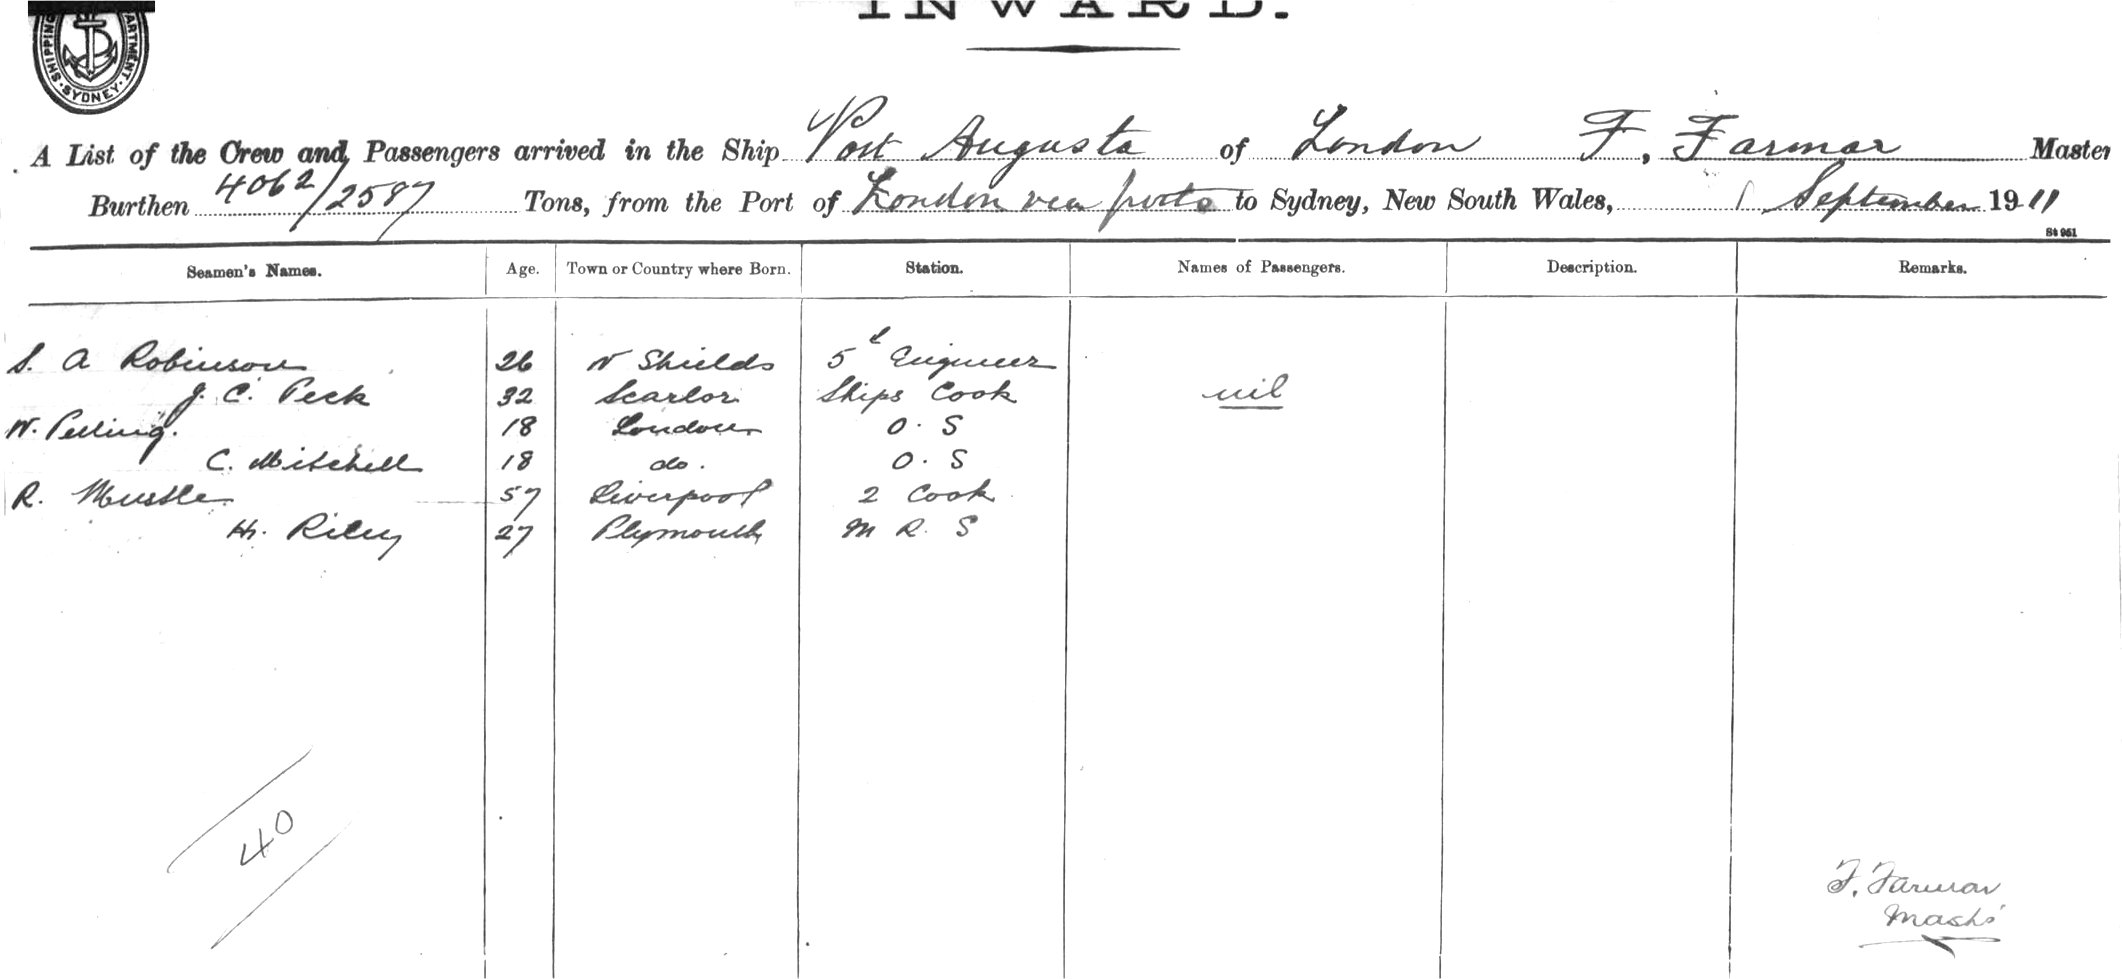 INWARD.
SHIPPING DEPARTMENT. SYDNEY
A List of the Crew and Passengers arrived in the Ship Port Augusta of London F. Farmar, Master
Burthen 4062/2587 Tons, from the Port of London via ports to Sydney, New South Wales, 1 September 1911
St 961
Seamen's Names. Age. Town or Country where Born. Station. Names of Passengers. Description. Remarks.
S. A Robinson 26 N Shields 5th Engineer
J. C. Peck 32 Ships Cook nil
W. Pelling. 18 London O. S
C. Mitchell 18 do. O. S
R. 57 Liverpool 2 Cook
H. Riley 27 Plymouth M R. S
40
F. Farmar
Master